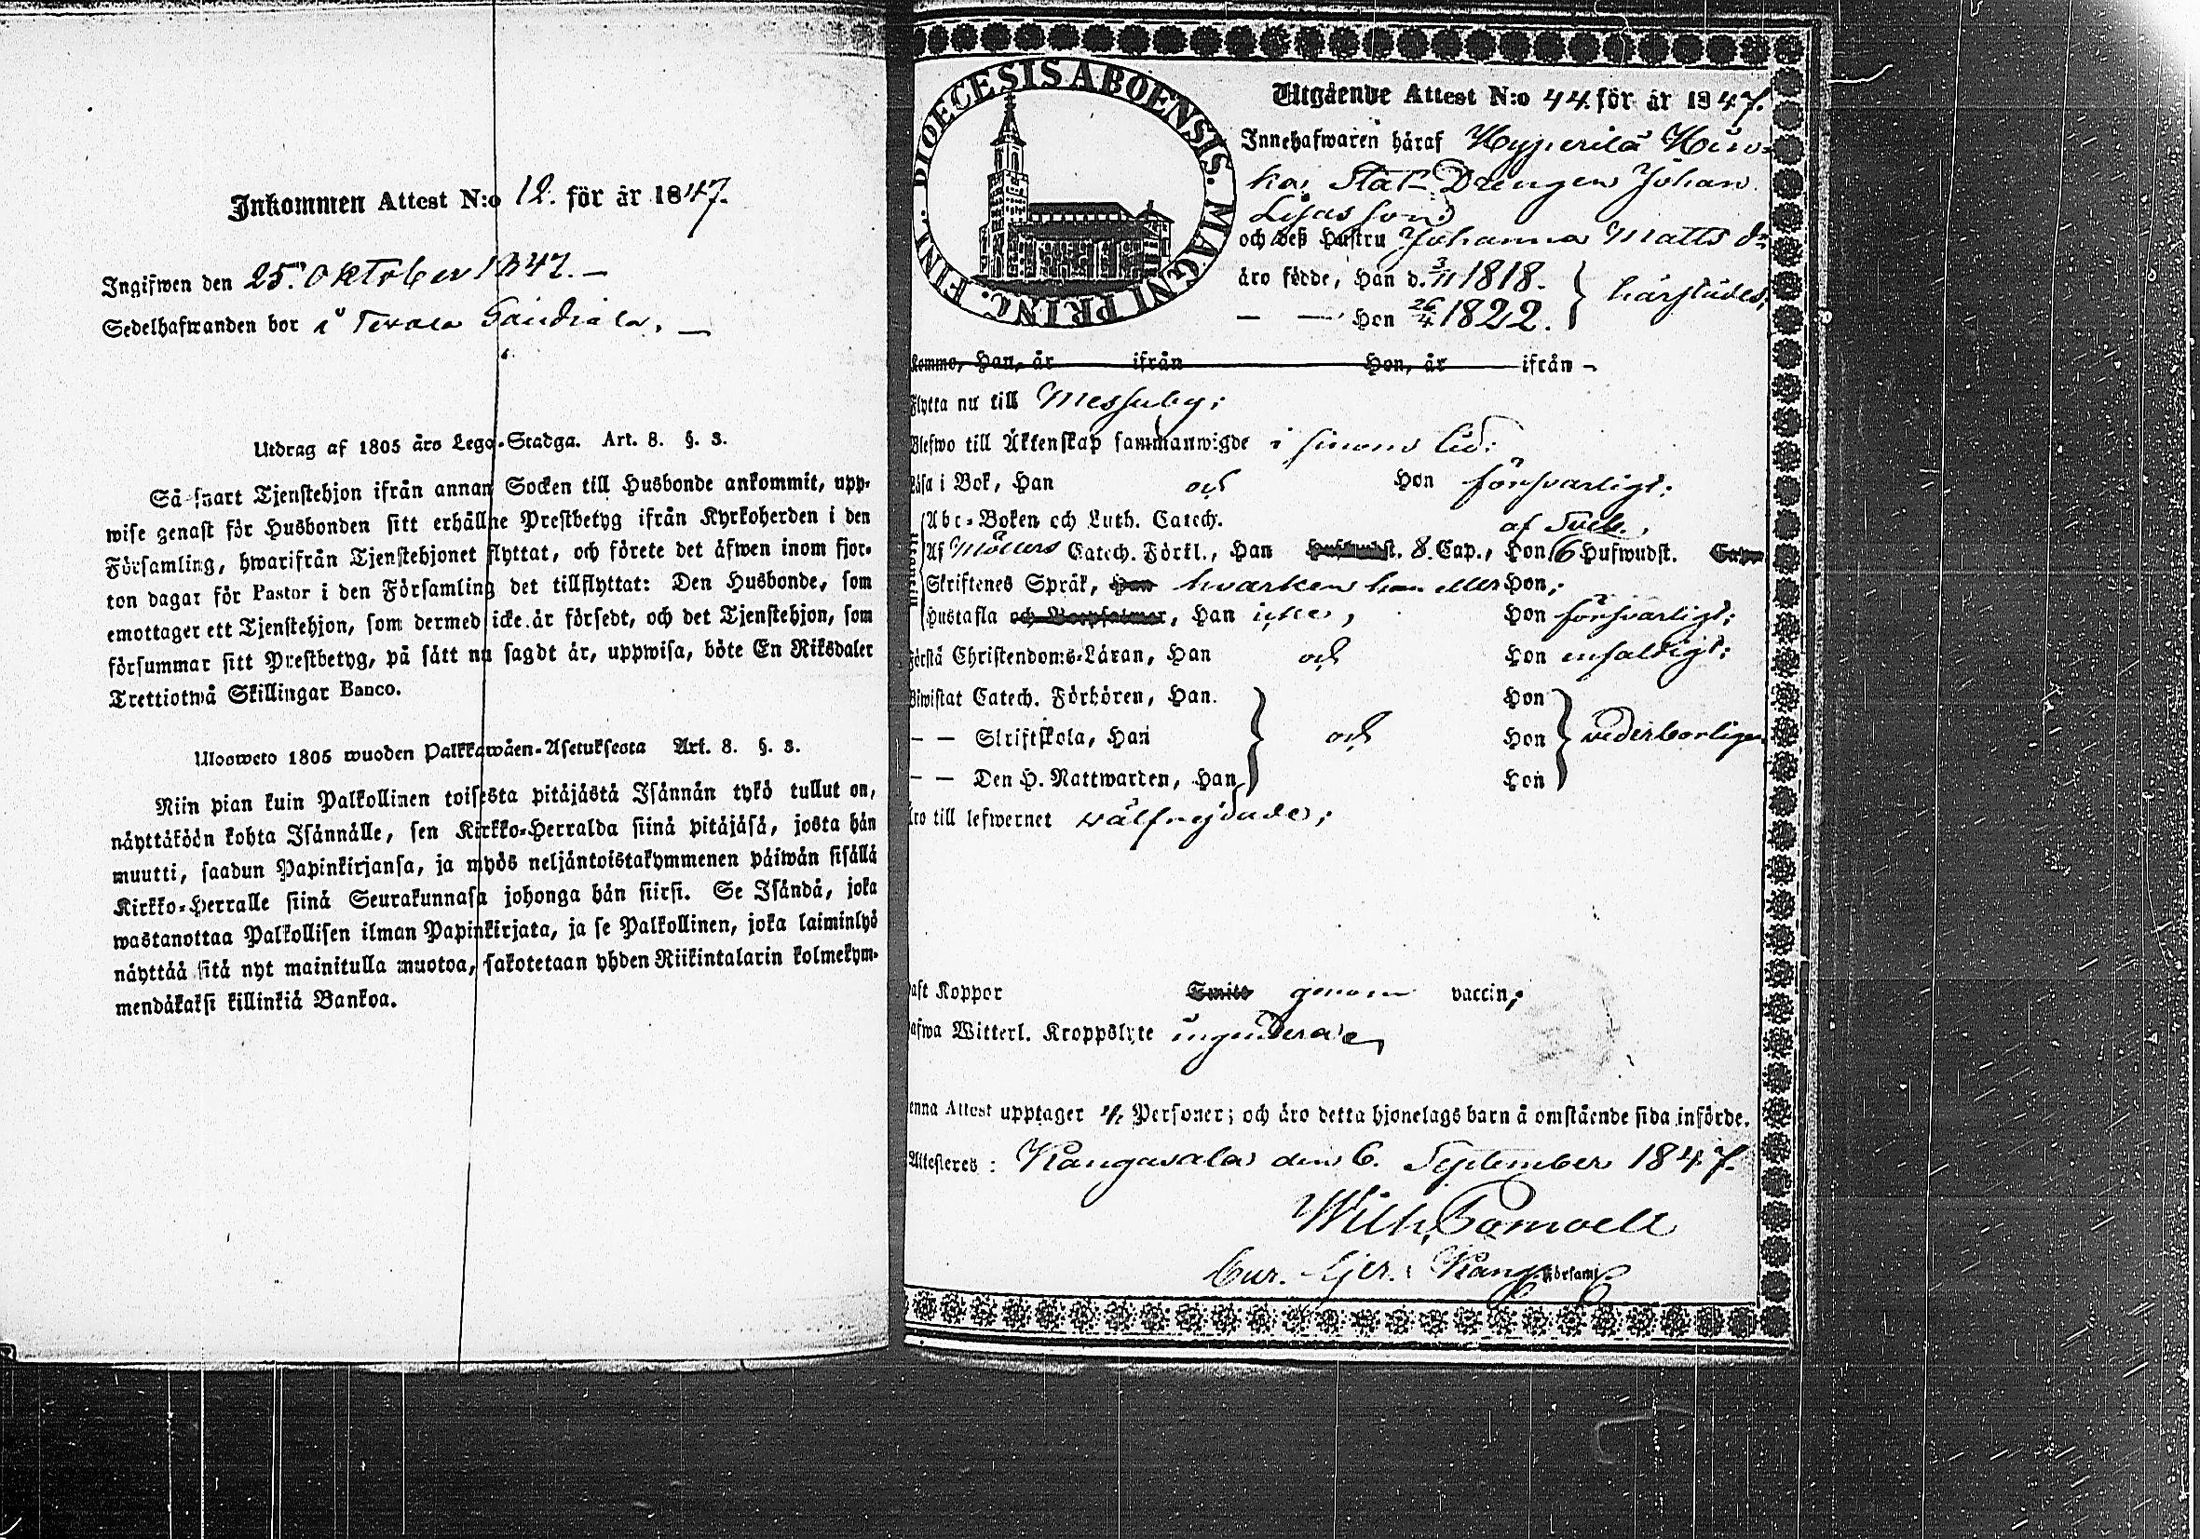 Inkommen Attest N:o 12. för år 1847.
Ingifwen den 25. Oktober 1847. —
Sedelhafwanden bor i Terala —
Utdrag af 1805 års Lego-Stadga. Art. 8. §. 3.
Så snart Tjenstehjon ifrån annan Socken till Husbonde ankommit, upp-
wise genast för Husbonden sitt erhållne Prestbetyg ifrån Kyrkoherden i den
Församling, hwarifrån Tjenstehjonet flyttat, och förete det äfwen inom fjor-
ton dagar för Pastor i den Församling det tillflyttat: Den Husbonde, som
emottager ett Tjenstehjon, som dermed icke är försedt, och det Tjenstehjon, som
försummar sitt Prestbetyg, på sätt nu sagdt är, uppwisa, böte En Riksdaler
Trettiotwå Skillingar Banco.
Ulosweto 1805 wuoden Palkkawäen-Asetuksesta Art. 8. §. 3.
Niin pian kuin Palkollinen toisesta pitäjästä Isännän tykö tullut on,
näyttäköön kohta Isännälle, sen Kirkko-Herralda siinä pitäjäsä, josta hän
muutti, saadun Papinkirjansa, ja myös neljäntoistakymmenen päiwän sisällä
Kirkko-Herralle siinä Seurakunnasa johonga hän siirsi. Se Isändä, joka
wastanottaa Palkollisen ilman Papinkirjata, ja se Palkollinen, joka laiminlyö
näyttää sitä nyt mainitulla muotoa, sakotetaan yhden Riikintalarin kolmekym-
mendäkaksi killinkiä Bankoa.
DIOECESIS ABOENSIS. MAGNI PRINC. FINL.
Utgående Attest N:o 44. för år 1847.
Innehafwaren häraf Hyperilä
Drengen Johan
och deß Hustru Johanna Matts dr
äro födde, Han d. 3/11 1818. härstädes,
— — Hon 26/4 1822.
Kommo, Han, år ifrån Hon, år ifrån -
Flytta nu till Messuby;
Blefwo till Äktenskap sammanwigde i sinom tid:
Läsa i Bok, Han och Hon försvarligt;
Abc-Boken och Luth. Catech. af
Af Möllers Catech. Förkl., Han 8. Cap., Hon 6 Hufwudst.
Skriftenes Språk, Han hvarken han eller Hon;
Hustafla och Han icke, Hon försvarligt;
Förstå Christendoms-Läran, Han och Hon enfaldigt;
Biwistat Catech. Förhören, Han. Hon
— — Skriftskola, Han och Hon vederbörligen
— — Den H. Nattwarden, Han Hon
Äro till lefwernet wälfrejdade;
Haft Koppor genom vaccin;
Hafwa Witterl. Kroppslyte ingendera
Denna Attest upptager 2/. Personer; och äro detta hjonelags barn å omstående sida införde.
Attesteres: Kangasala den 6. September 1847.
Wilh.
Församl.